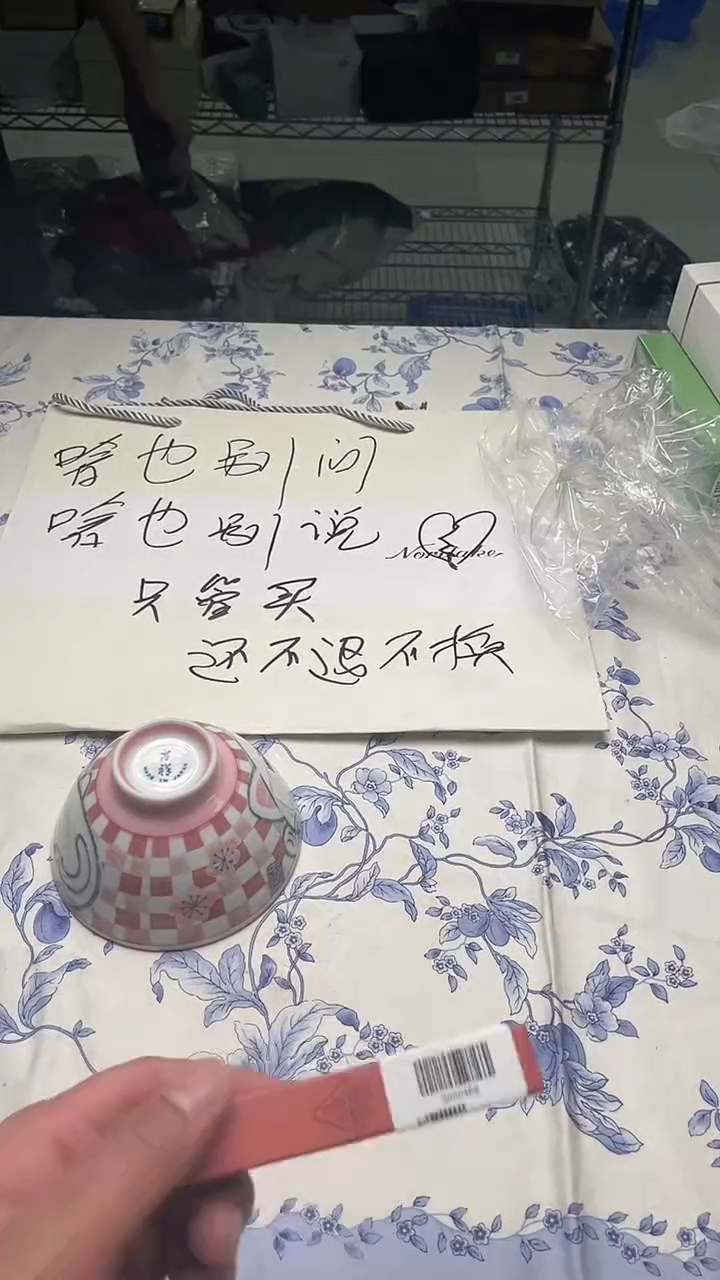 啥也别问
啥也别说
Noritake
只管买
还不退不换
MADE IN JAPAN